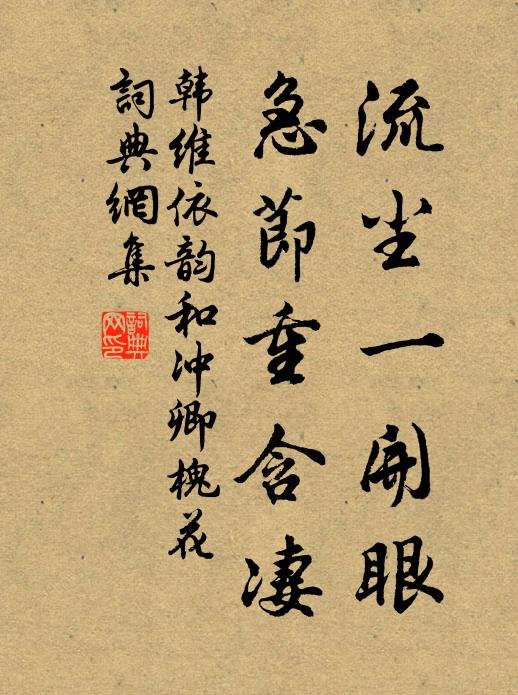 流尘一開眼
急節重含凄
韩维依韵和冲卿槐花
詞典網集
詞典网印